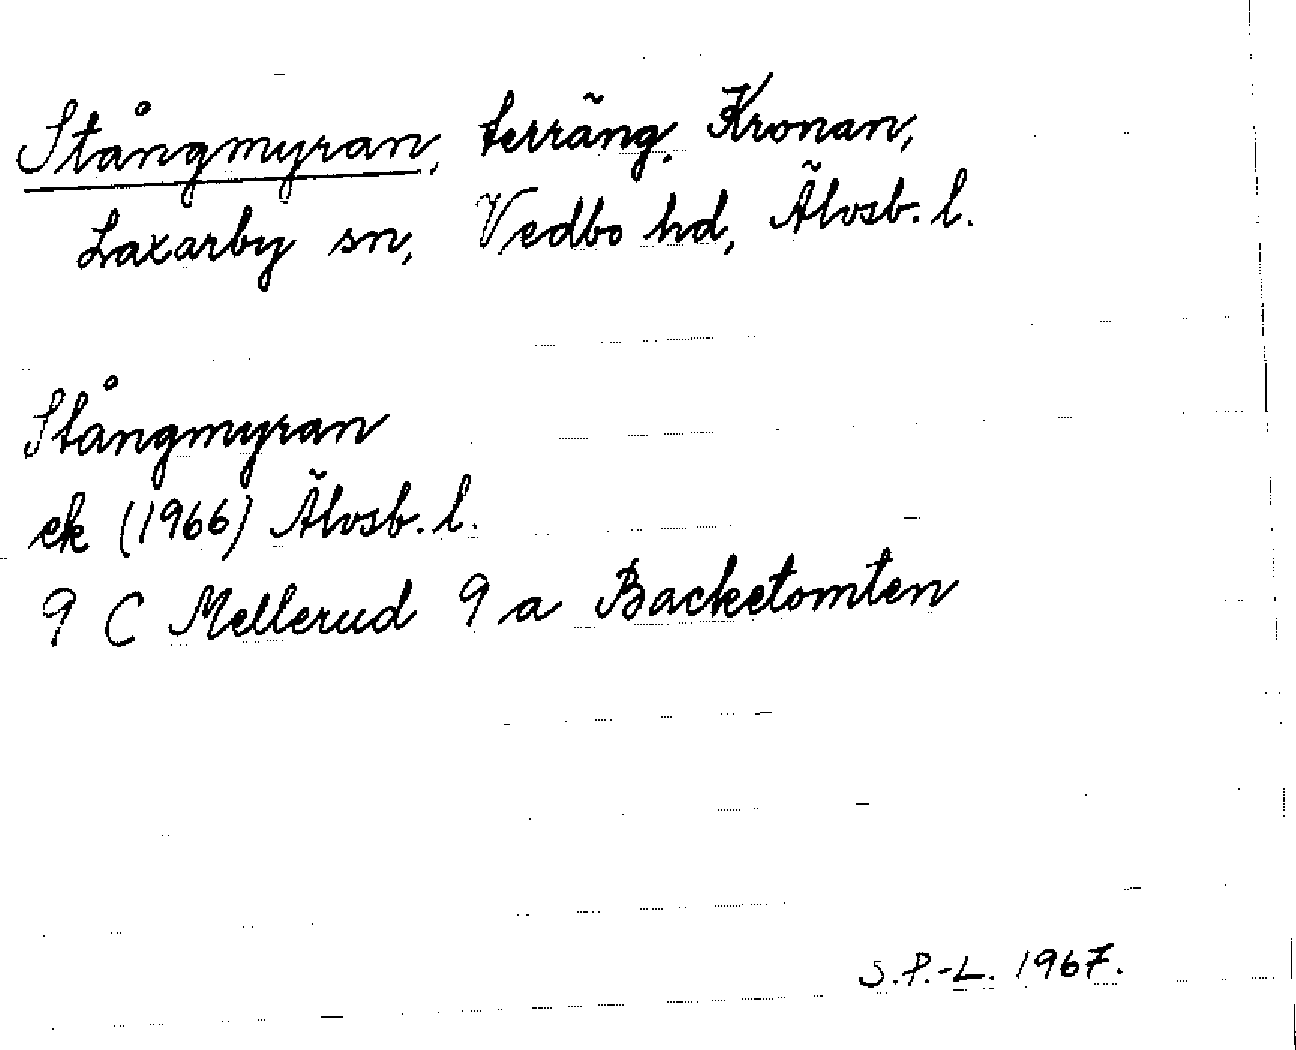 Stångmyran, terräng, Kronan,
Laxarby sn, Vedbo hd, Älvsb. l.
Stångmyran
ek (1966) Älvsb. l.
9 C Mellerud 9 a Backetomten
S.P.-L. 1967.